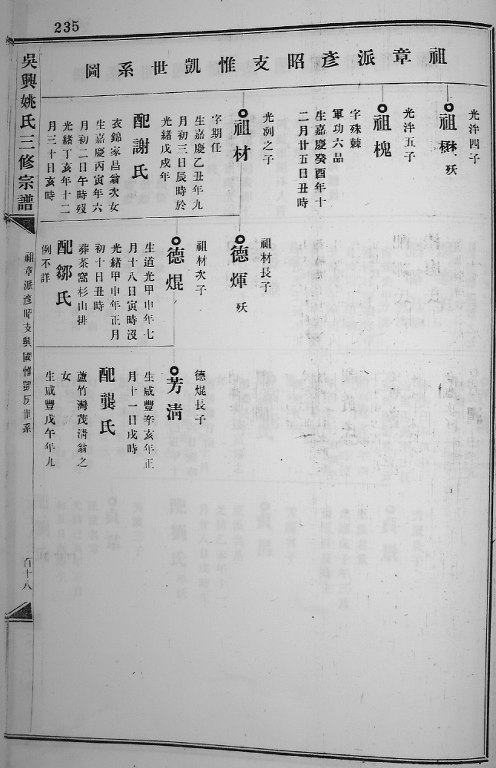 235
祖章派彥昭支惟凱世系圖
光泮四子
祖 殀
光泮五子
祖槐
字殊棘
軍功六品
生嘉慶癸酉年十
二月廿五日丑時
光冽之子
祖材
字期任
生嘉慶乙丑年九
月初三日辰時於
光緒戊戌年
配謝氏
衣錦家昌翁次女
生嘉慶丙寅年六
月初二日午時歿
光緒丁亥年十二
月三十日亥時
祖材長子
德煇 殀
祖材次子
德焜
生道光甲申年七
月十八日寅時沒
光緒甲申年正月
初十日丑時
葬茶窩杉山排
配鄒氏
例不詳
德焜長子
芳清
生咸豐辛亥年正
月十一日戌時
配龔氏
蘆竹灣茂清翁之
女
生咸豐戊午年九
吳興姚氏三修宗譜
祖章派彥昭支興國惟凱世系
百十八